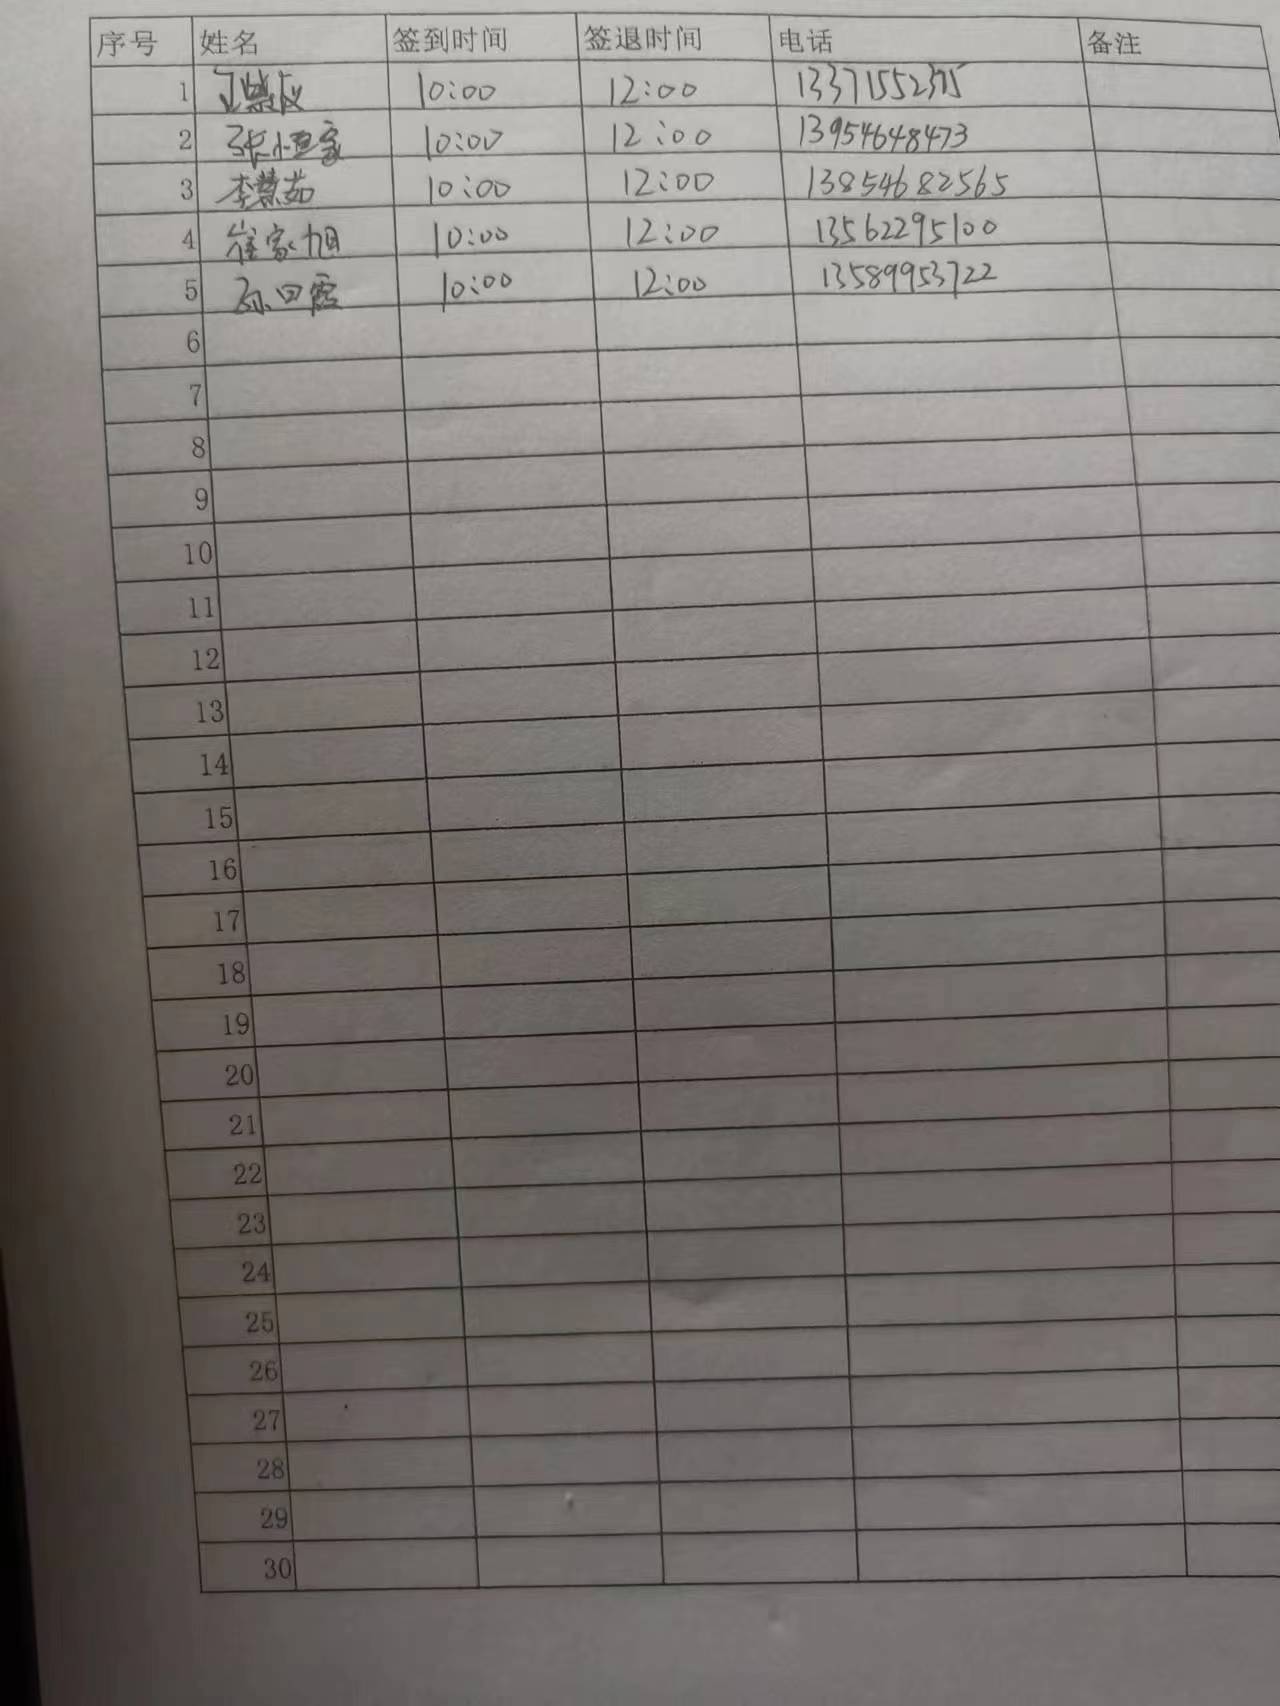 序号 姓名 签到时间 签退时间 电话 备注
1 10:00 12:00 13371552375
2 张恒家 10:00 12:00 13954648473
3 李慧茹 10:00 12:00 13854682565
4 崔家旭 10:00 12:00 13562295100
5 10:00 12:00 13589953722
6
7
8
9
10
11
12
13
14
15
16
17
18
19
20
21
22
23
24
25
26
27
28
29
30